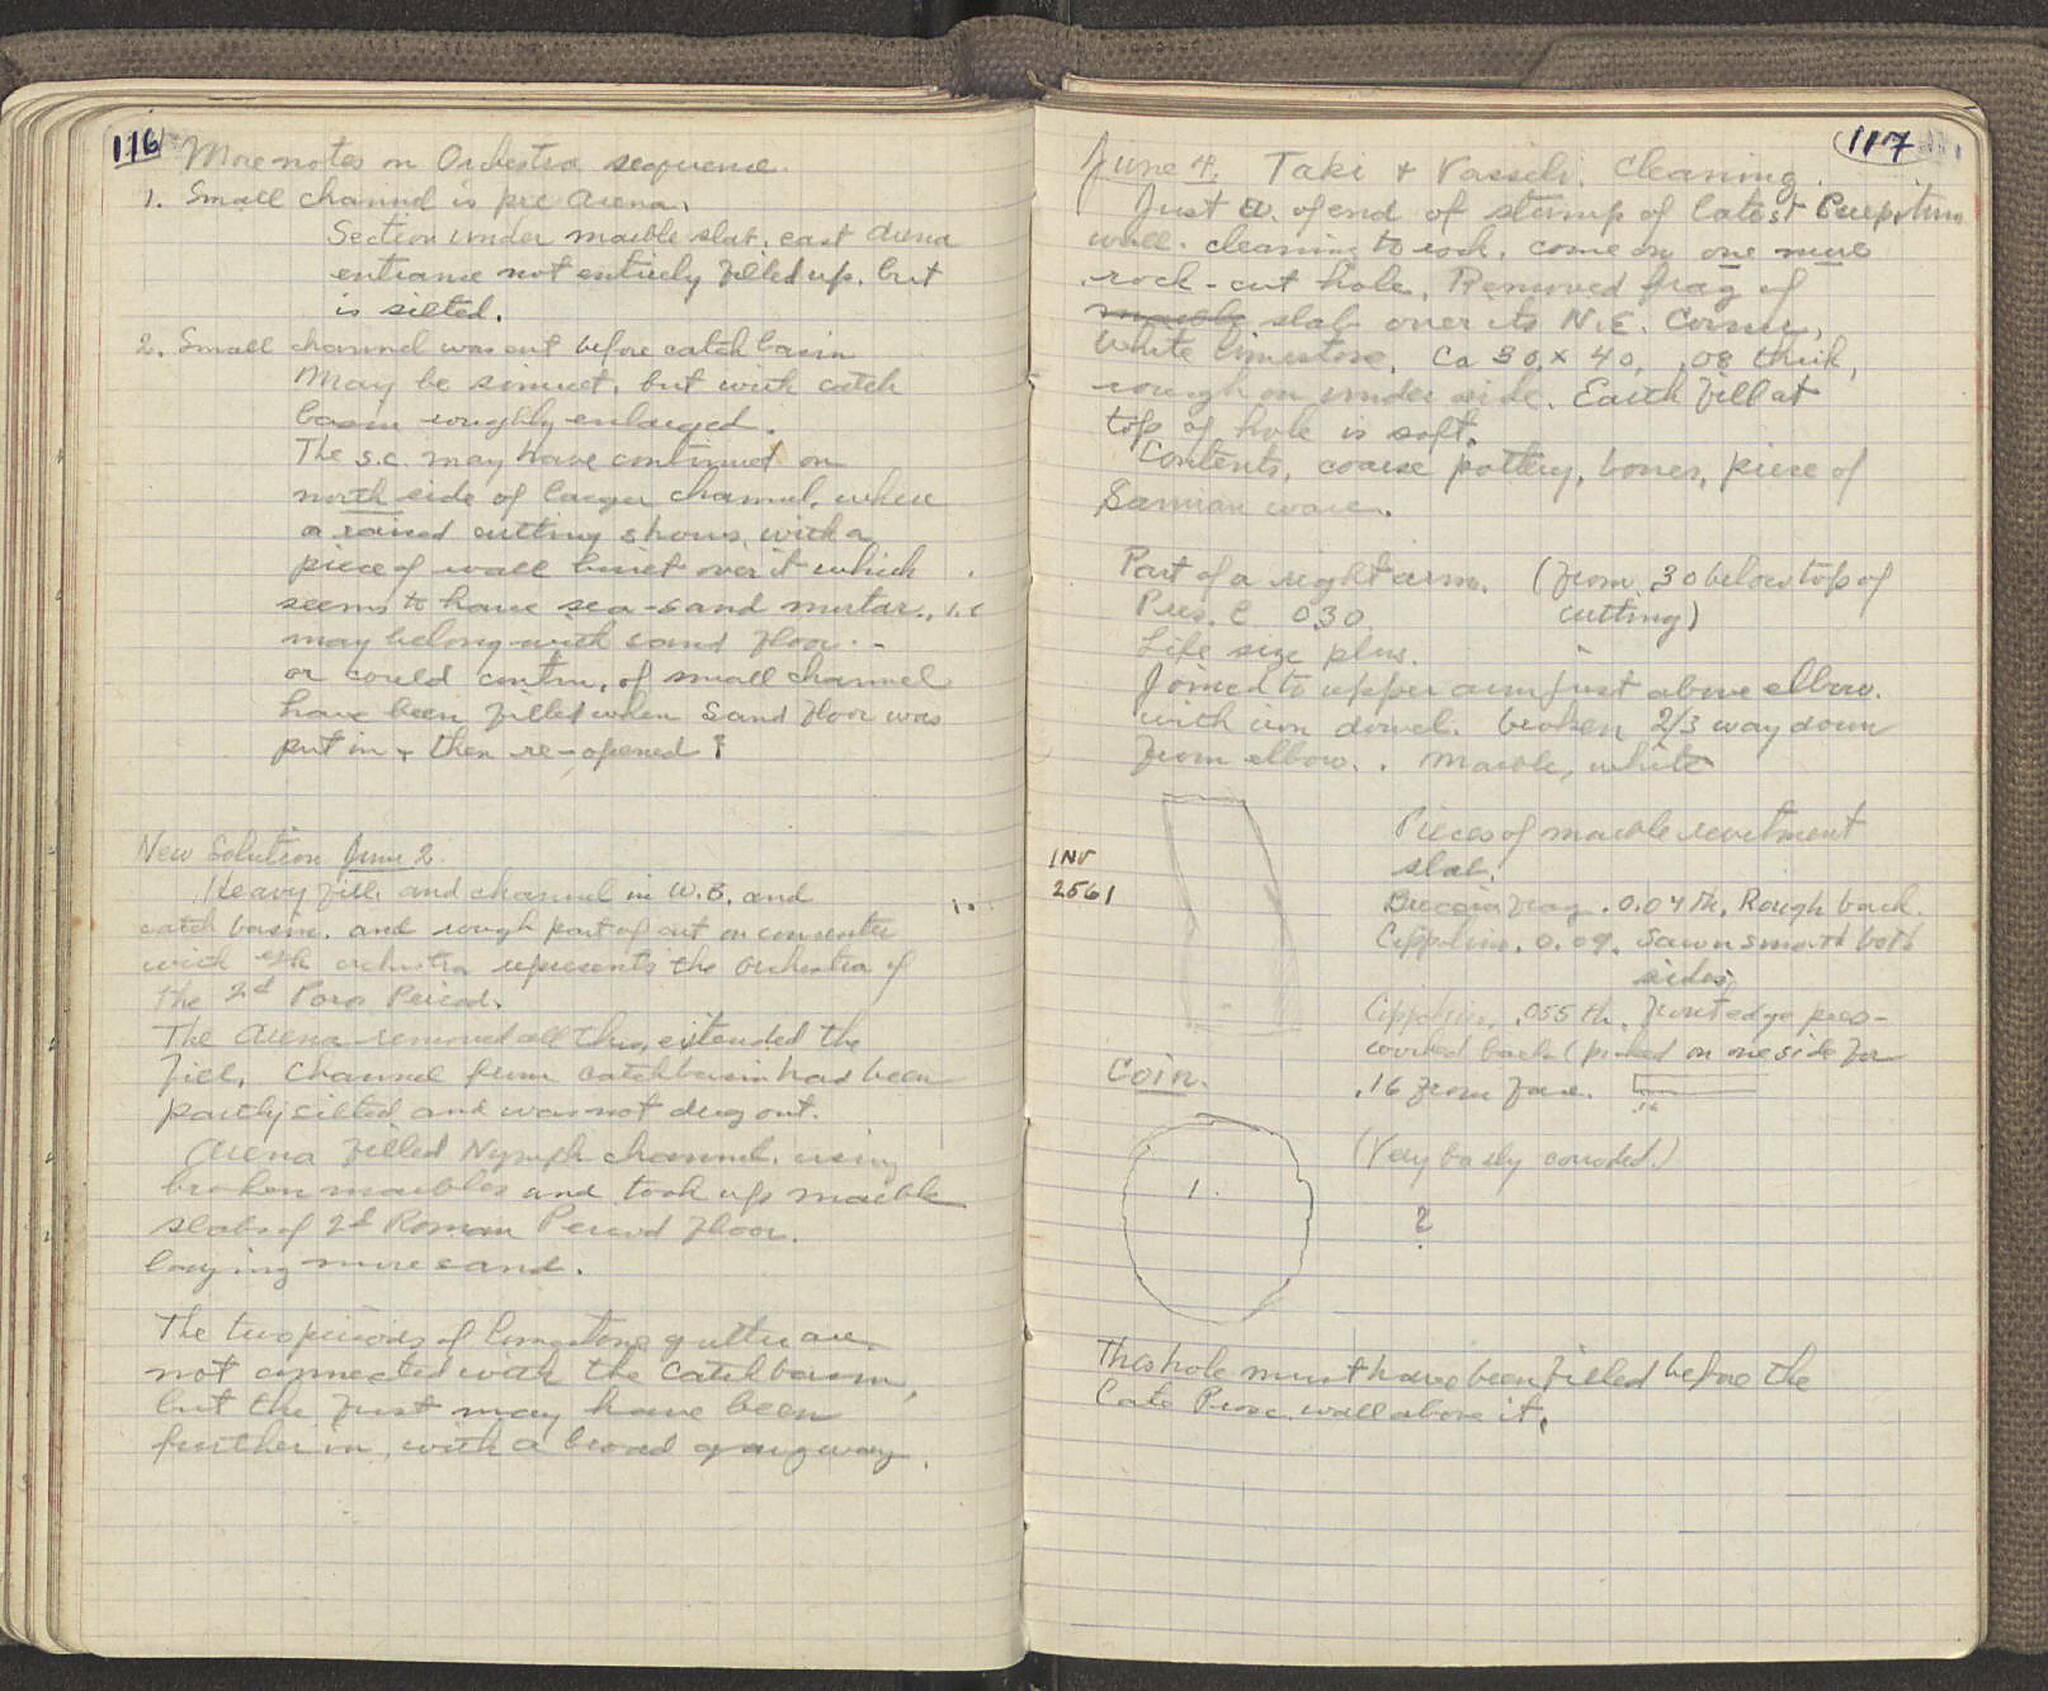 116
More notes on Orchestra sequence.
1. Small channel is pre Arena.
Section under marble slab, east arena
entrance not entirely filled up, but
is silted.
2. Small channel was cut before catch basin
May be simult, but with catch
basin roughly enlarged.
The s.c. may have continued on
north side of larger channel, where
a raised cutting shows, with a
piece of wall built over it which
seems to have sea-sand mortar, i.e
may belong with sand floor. -
or could contin. of small channel
have been filled when sand floor was
put in + then re-opened ?
New Solution June 2.
Heavy fill, and channel in W.B. and
catch basin, and rough part of cut on concenter
with orchestra represents the orchestra of
the 2d Period.
The Arena removed all this, extended the
fill. Channel from catch basin had been
partly silted and was not dug out.
Arena filled Nymph channel, using
broken marbles and took up marble
slabs of 2d Roman Period floor.
laying more sand.
The two periods of limestone gutter are
not connected with the catch basin,
but the first may have been
further in, with a broad gangway.
117
June 4. Taki + Vassili. Cleaning.
Just W. of end of stump of latest Pulpitum
wall. cleaning to rock, come on one more
rock-cut hole. Removed frag of
marble slab over its N.E. Corner,
White limestone, Ca 30 x 40, .08 thick,
rough on under side. Earth fill at
top of hole is soft.
Contents, coarse pottery, bones, piece of
Samian ware.
Part of a right arm. (from .30 below top of
cutting)
Pres. l 0.30.
Life size plus.
Joined to upper arm just above elbow.
with iron dowel. broken 2/3 way down
from elbow. . Marble, white
INV
2561
Pieces of marble revetment
slab.
Breccia frag. 0.04 th. Rough back.
Cippolino. 0.09. Sawn smooth both
sides.
Cippolino, .055 th. Front edge pres-
worked back (picked on one side for
.16 from face.
.16
Coin.
1.
(Very badly corroded.)
?
This hole must have been filled before the
Late Prosc. wall above it.